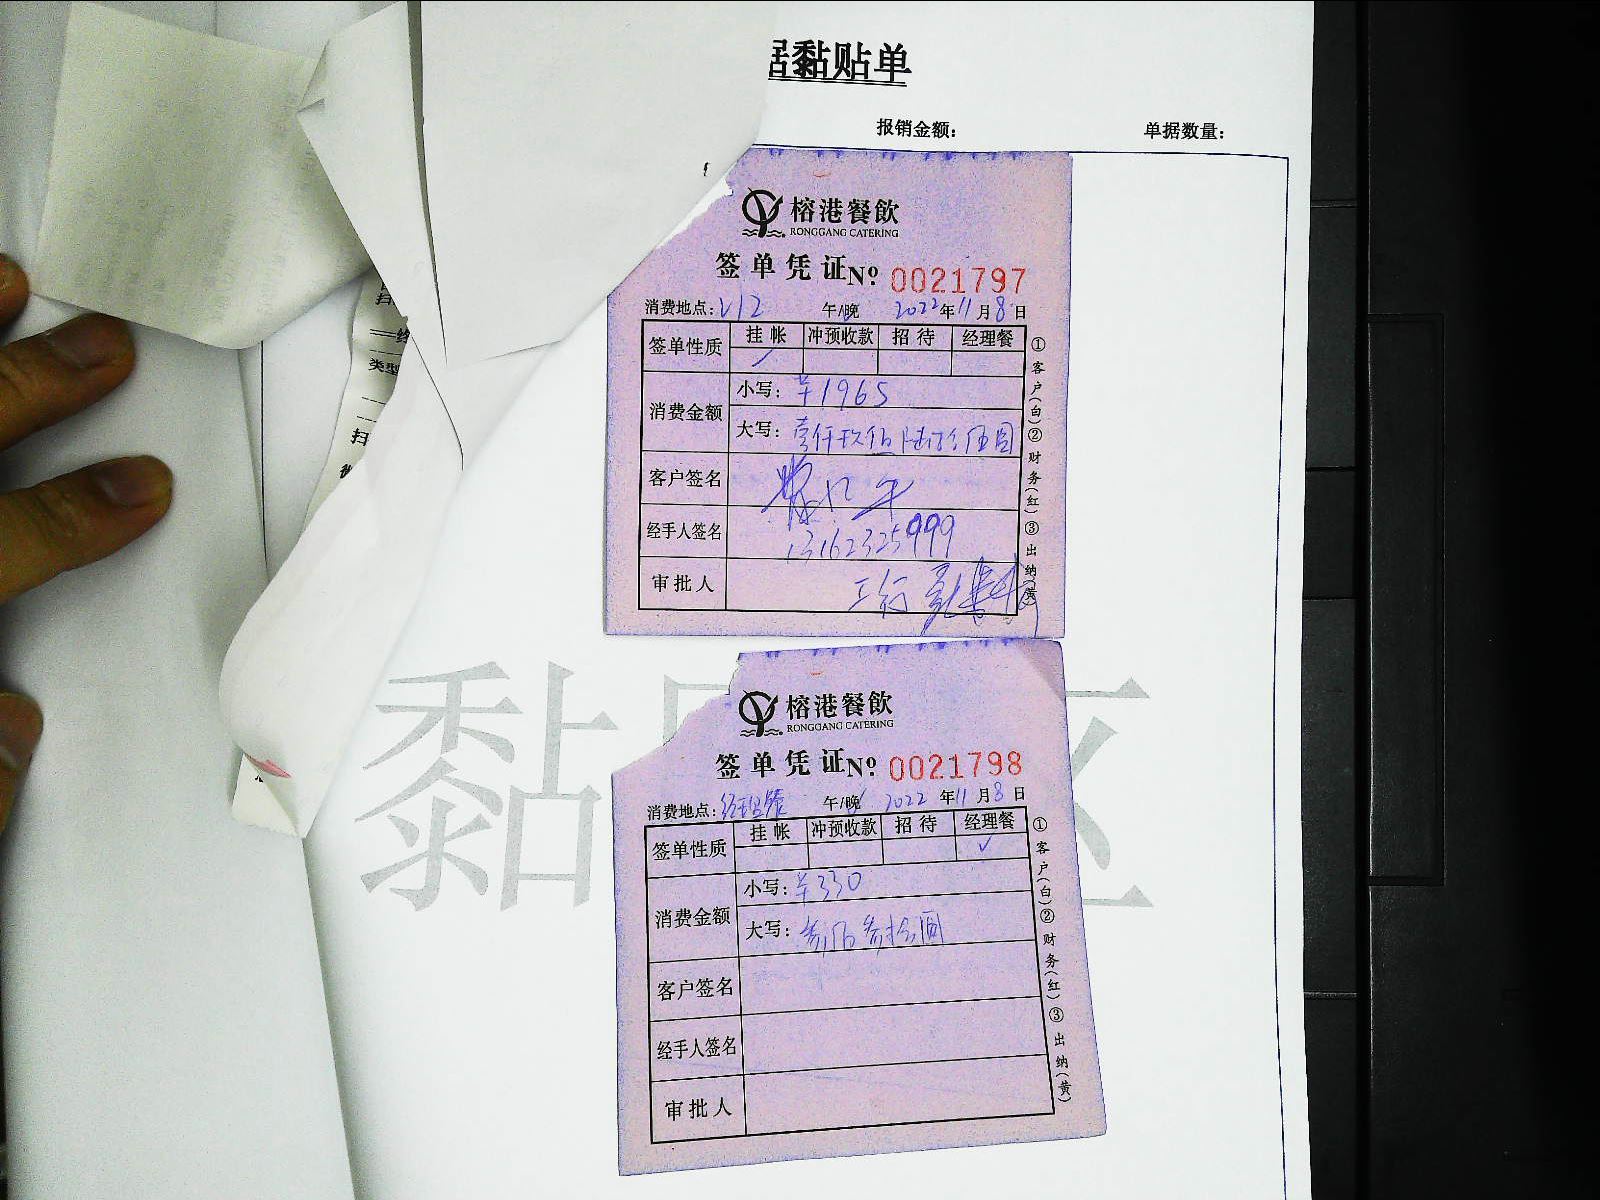 黏贴单
报销金额：
单据数量：
榕港餐飲
RONGGANG CATERING
签单凭证 Nº 0021797
消费地点：V12 午/晚 2022年11月8日
签单性质 挂帐 冲预收款 招待 经理餐
✓
消费金额 小写：¥1965
大写：壹仟玖佰陆拾伍圆
客户签名
经手人签名 13162325999
审批人
①客户(白)②财务(红)③出纳(黄)
榕港餐飲
RONGGANG CATERING
签单凭证 Nº 0021798
消费地点：经理餐 午/晚 2022年11月8日
签单性质 挂帐 冲预收款 招待 经理餐
✓
消费金额 小写：¥330
大写：叁佰叁拾圆
客户签名
经手人签名
审批人
①客户(白)②财务(红)③出纳(黄)
类型
扫
黏 区